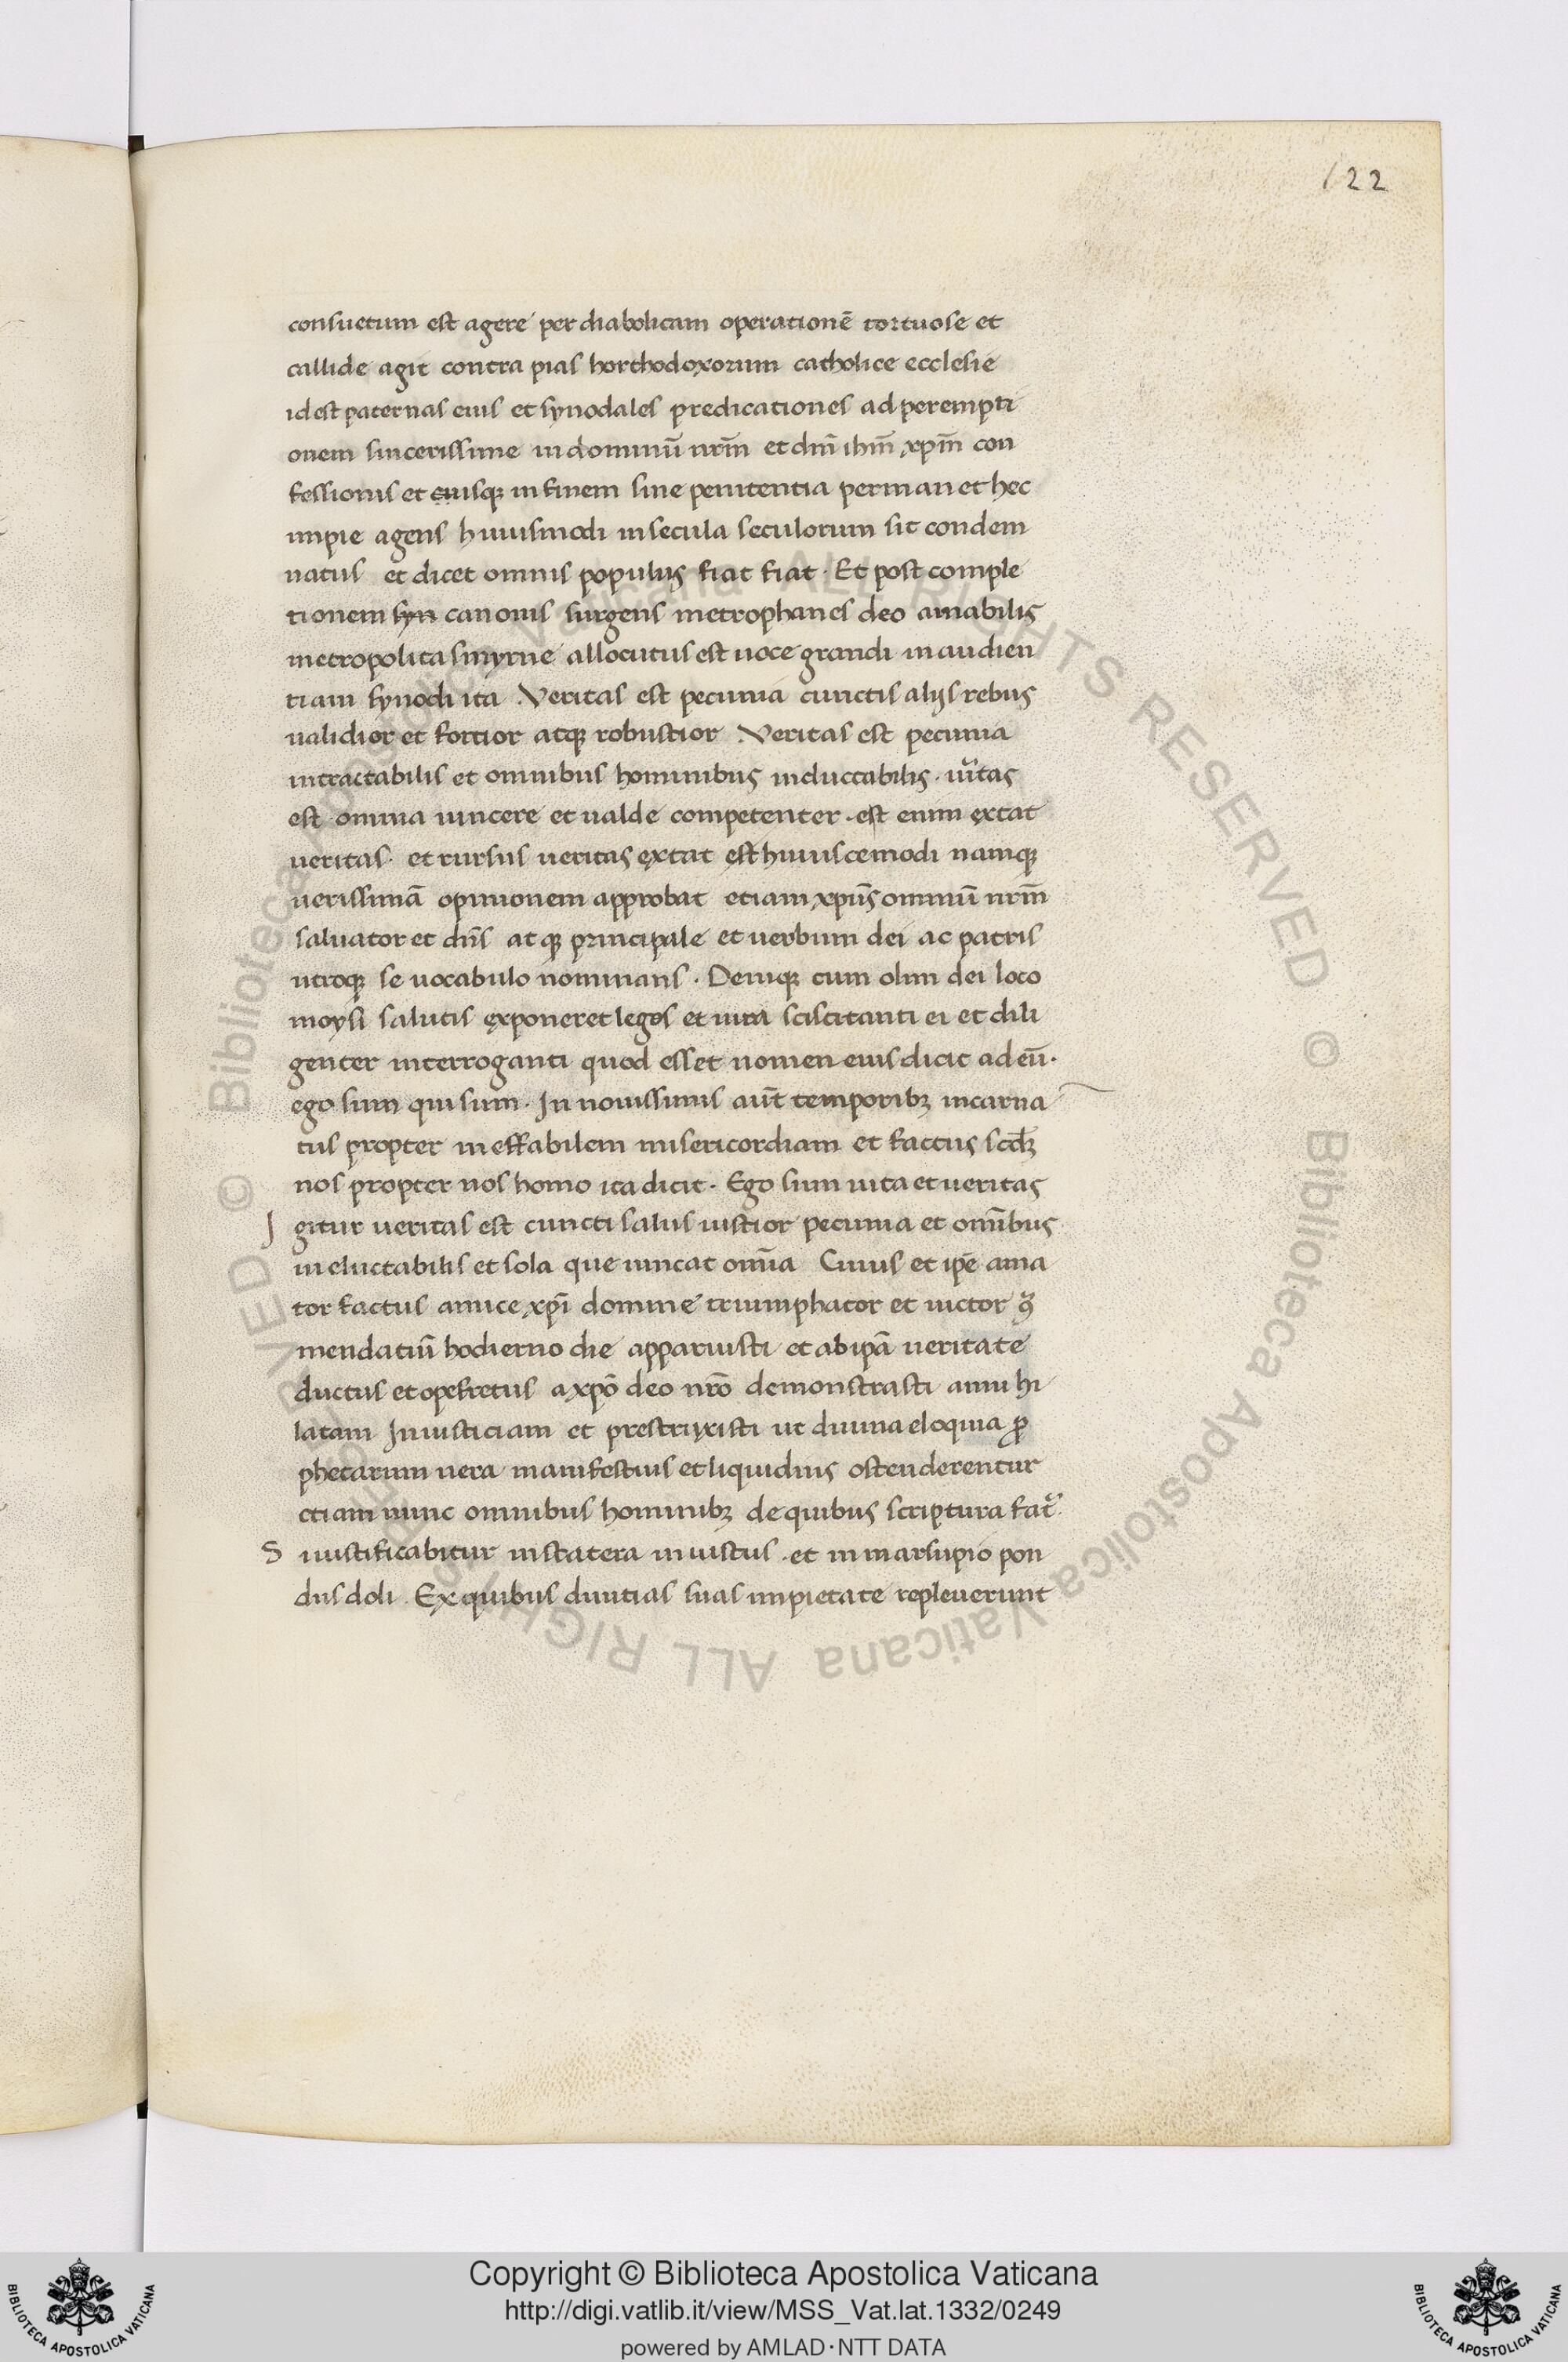 122
consuetum est agere per diabolicam operationē tortuose et
callide agit contra pias horthodoxorum catholice ecclesie
id est paternas eius et synodales predicationes ad perempti
onem sincerissime in dominū nrm̄ et dm̄ ihm̄ xpm̄ con
fessionis et cuisq; in finem sine penitentia permanet hec
impie agens huiusmodi in secula seculorum sit condem
natus et dicet omnis populus fiat fiat · Et post comple
tionem syn canonis surgens metrophanes deo amabilis
metropolita smyrne allocutus est uoce grandi in audien
tiam synodi ita . Veritas est pecunia cunctis alijs rebus
ualidior et fortior atq; robustior . Veritas est pecunia
intractabilis et omnibus hominibus inductabilis · ūitas
est omnia uincere et ualde competenter · est enim extat
ueritas · et rursus ueritas extat est huiuscemodi namq;
uerissimā opinionem approbat etiam xpūs omniū nrm̄
saluator et dn̄s atq; principale et uerbum dei ac patris
utroq; se uocabulo nominans · Deniq; cum olim dei loco
moysi salutis exponeret legos et iura sciscitanti ei et dili
genter interroganti quod esset nomen eius dicit ad eū ·
ego sum qui sum · In nouissimis aūt temporib; incarna
tus propter ineffabilem misericordiam et factus scd̄;
nos propter nos homo ita dicit · Ego sum uita et ueritas
I gitur ueritas est cuncti salus iustior pecunia et omībus
ineluctabilis et sola que uincat omīa Cuius et ipē ama
tor factus amice xpī domine triumphator et uictor 9ͣ
mendatiū hodierno die apparuisti et ab ipā ueritate
ductus et opefretus a xpō deo nrō demonstrasti anni hi
latam Iniusticiam et prestrixisti ut diuina eloquia ꝓ
phetarum uera manifestius et liquidius ostenderentur
etiam nunc omnibus hominib; de quibus scriptura fat᷑.
S iustificabitur in statera iniustus · et in marsupio pon
dus doli . Ex quibus diuitias suas impietate repleuerunt
© Biblioteca Apostolica Vaticana ALL RIGHTS RESERVED © Biblioteca Apostolica Vaticana ALL RIGHTS RESERVED
BIBLIOTECA APOSTOLICA VATICANA
Copyright © Biblioteca Apostolica Vaticana
http://digi.vatlib.it/view/MSS_Vat.lat.1332/0249
powered by AMLAD·NTT DATA
BIBLIOTECA APOSTOLICA VATICANA